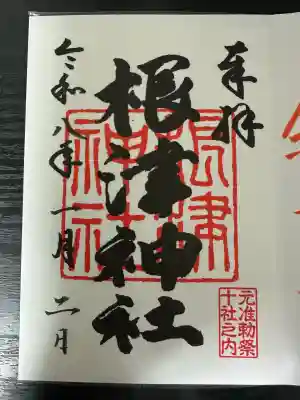 奉拝
元准勅祭
十社之内
根津神社
根津神社
令和八年一月二日